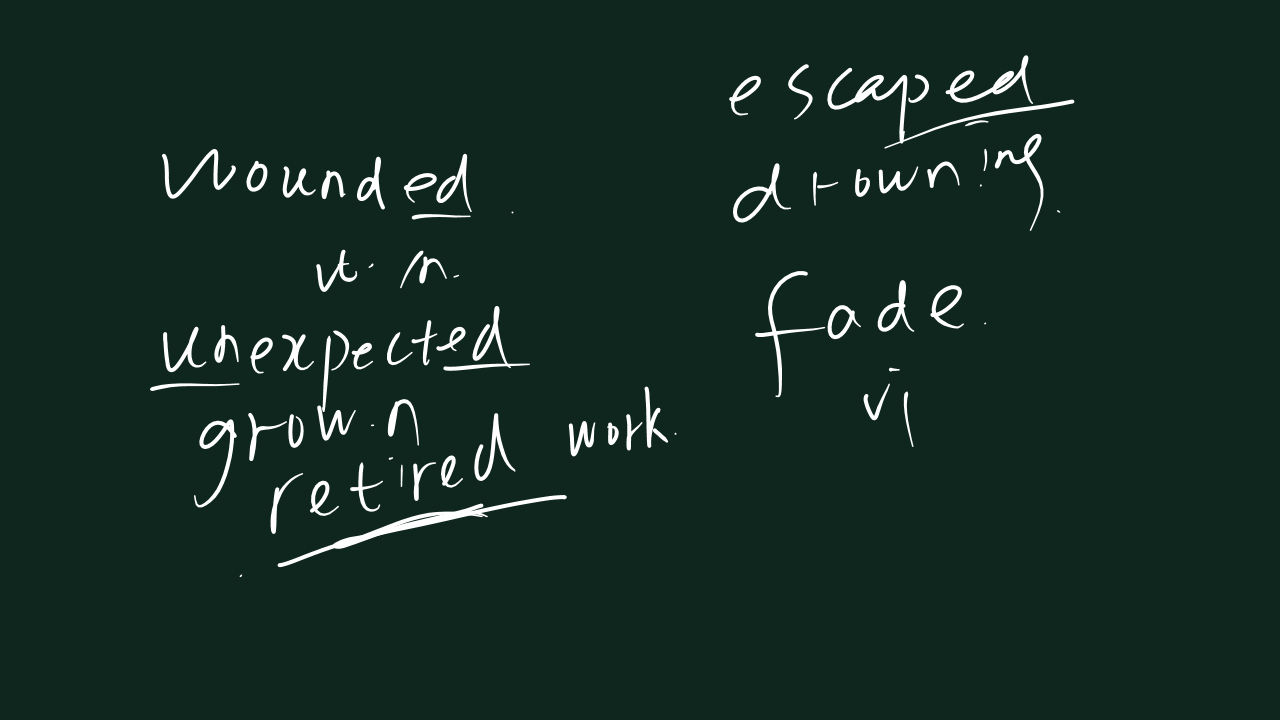 wounded
vt. n.
unexpected
grown
retired work.
escaped
drowning
fade
vi